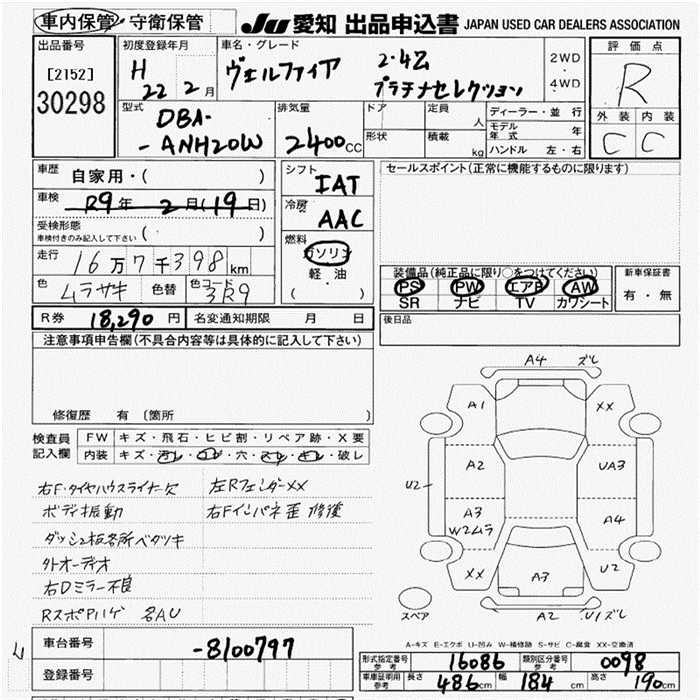 車内保管・守衛保管 JU 愛知 出品申込書 JAPAN USED CAR DEALERS ASSOCIATION
出品番号 [2152] 30298
初度登録年月 H 22年 2月
車名・グレード ヴェルファイア 2.4Z プラチナセレクション
2WD・4WD
評価点 R
外装 C 内装 C
型式 DBA-
-ANH20W
排気量 2400cc
ドア 形状
定員 人 積載 kg
ディーラー・並行
モデル年式 年
ハンドル 左・右
車歴 自家用・( )
車検 R9年 2月(19日)
受検形態 車検付きのみ記入して下さい ( )
走行 16万7千398km
色 ムラサキ 色替 色コード 3R9
シフト IAT
冷房 AAC
燃料 ガソリン
軽・油
( )
セールスポイント(正常に機能するものに限ります)
装備品(純正品に限り○をつけてください)
PS PW エアB AW
SR ナビ TV カワシート
新車保証書
有・無
R券 18,290円 名変通知期限 月 日
後日品
注意事項申告欄(不具合内容等は具体的に記入して下さい)
修復歴 有 〔箇所 〕
検査員記入欄
FW キズ・飛石・ヒビ割・リペア跡・X要
内装 キズ・汚レ・コゲ・穴・スレ・キレ・破レ
右F・タイヤハウスライナー欠 左RフェンダーXX
ボディ振動 右Fインパネ歪 修復
ダッシュ板各所ベタツキ
外オーディオ
右Dミラー不良
RスポPハゲ 各AU
A4 ズレ
A1 XX
A2 UA3
U2
A3 W2ムラ A4
XX A3 U2
スペア A2 U1ズレ
A-キズ E-エクボ U-凹み W-補修跡 S-サビ C-腐食 XX-交換済
車台番号 -8100797
登録番号
形式指定番号 参考 16086 類別区分番号 参考 0098
車庫証明用 参考 長さ 486cm 幅 184cm 高さ 190cm